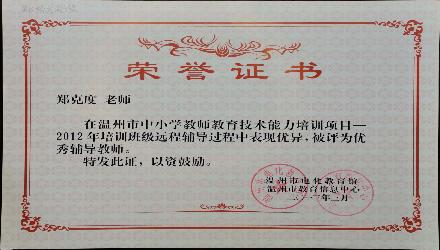 荣誉证书
郑克度 老师
在温州市中小学教师教育技术能力培训项目—
2012年培训班级远程辅导过程中表现优异，被评为优
秀辅导教师。
特发此证，以资鼓励。
温州市电化教育馆
温州市教育信息中心